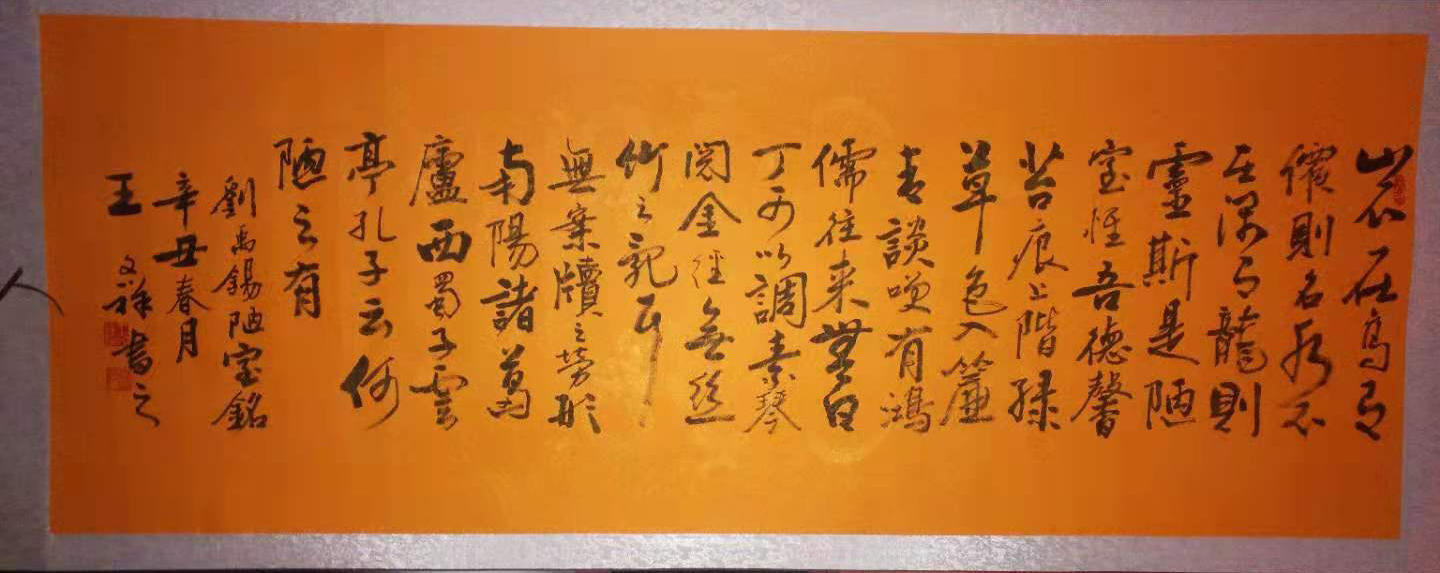 山不在高有
僊則名水不
在深有龍則
靈斯是陋
室惟吾德馨
苔痕上階綠
草色入簾
青談笑有鴻
儒往來無白
丁可以調素琴
閱金經無絲
竹之亂耳
無案牘之勞形
南陽諸葛
廬西蜀子雲
亭孔子云何
陋之有
劉禹錫陋室銘
辛丑春月
王文祥書之